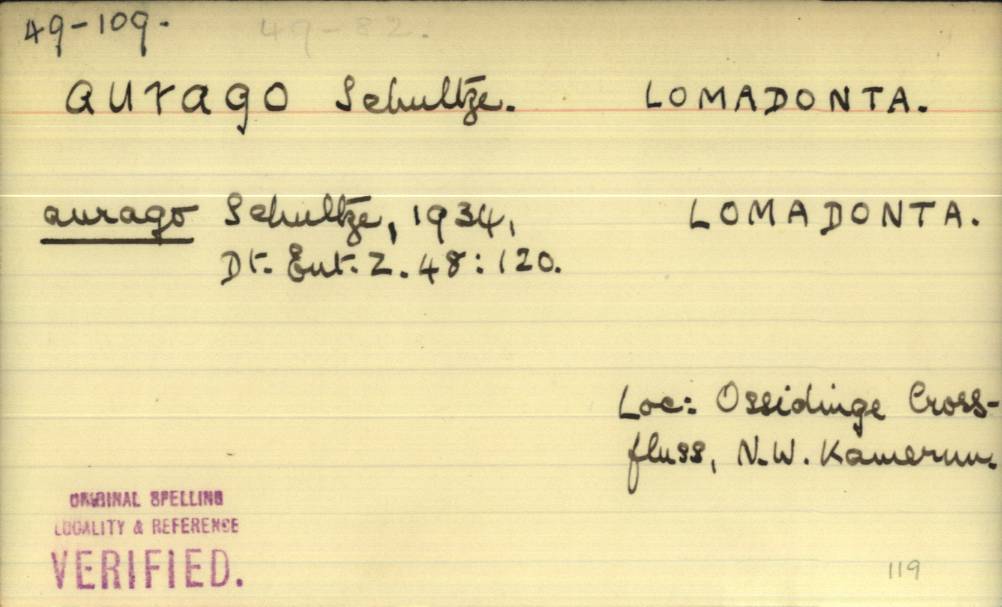 49-109. 49-82.
aurago Schultze. LOMADONTA.
aurago Schultze, 1934, LOMADONTA.
Dt. Ent. Z. 48:120.
Loc: Ossidinge Cross-
fluss, N.W. Kamerun.
ORIGINAL SPELLING
LOCALITY & REFERENCE
VERIFIED.
119